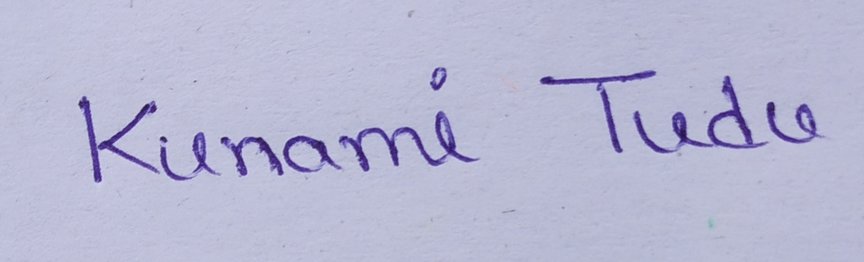 Kunami Tudu